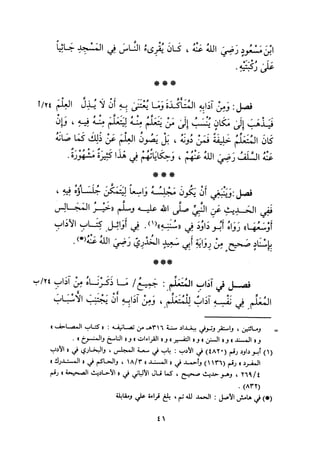 ابْنَ مَسْعُودٍ رَضِيَ اللهُ عَنْهُ ، كَـانَ يُقْرِىءُ النَّـاسَ فِي الْمَسْجِدِ جَـاثِيـاً
عَلَى رُكْبَتَيْهِ .
***
فصـل : وَمِنْ آدَابِهِ الْمُتَأَكِّـدَةِ وَمَـا يُعْتَنَى بِـهِ أَنْ لَا يُـذِلَّ العِلْمَ أ/٢٤
فَيَـذْهَبَ إِلَى مَكَانٍ يُنْسَبُ إِلَى مَنْ يَتَعَلَّمُ مِنْـهُ لِيَتَعَلَّمَ مِنْـهُ فِيـهِ ، وَإِنْ
كَانَ الْمُتَعَلِّمُ خَلِيفَةً فَمَنْ دُونَهُ ، بَلْ يَصُونُ الْعِلْمَ عَنْ ذَلِكَ كَمَا صَانَهُ
عَنْهُ السَّلَفُ رَضِيَ اللهُ عَنْهُم ، وَحِكَايَاتُهُمْ فِي هَذَا كَثِيرَةٌ مَشْهُورَةٌ .
***
فصـل : وَيَنْبَغِي أَنْ يَكُونَ مَجْلِسُهُ وَاسِعاً لِيَتَمَكَّنَ جُلَسَـاؤُهُ فِيهِ ،
فَفِي الْحَـدِيثِ عَنِ النَّبِيِّ صلَّى الله عليـه وسلم « خَيْـرُ الْمَجَـالِسِ
أَوْسَعُهَـا » رَوَاهُ أَبُـو دَاوُدَ فِي « سُنَنِـهِ »(١) . فِي أَوَائِـلِ كِتَـابِ الآدَابِ
بِإِسْنَادٍ صَحِيحٍ مِنْ رِوَايَةِ أَبِي سَعِيدٍ الْخُدْرِيِّ رَضِيَ اللهُ عَنْهُ(*).
***
فصـــل فِي آدَابِ الْمُتَعَلِّمِ : جَمِيـعُ / مَـا ذَكَـرْنَـاهُ مِنْ آدَابِ ب/٢٤
الْمُعَلِّمِ فِي نَفْسِـهِ آدَابٌ لِلْمُتَعَلِّمِ ، وَمِنْ آدَابِـهِ أَنْ يَجْتَنِبَ الأَسْبَـابَ
= ومـائتين ، واستقر وتـوفي ببغـداد سنـة ٣١٦هـ من تصـانيفـه : « كتـاب المصـاحف »
و « المسند » و « السنن » و « التفسير » و « القراءات » و « الناسخ والمنسوخ » .
(١) أبو داود رقم (٤٨٢٠) في الأدب : باب في سعـة المجلس ، والبخـاري في « الأدب
المفـرد » رقم (١١٣٦) وأحمـد في « المسنـد » ١٨/٣ ، والحـاكم في « المستـدرك »
٢٦٩/٤ ، وهـو حديث صحيـح ، كمـا قـال الألبـاني في « الأحـاديث الصحيحـة » رقم
(٨٣٢) .
(*) في هامش الأصل : الحمد لله ثم ، بلغ قراءة علي ومقابلة
٤١